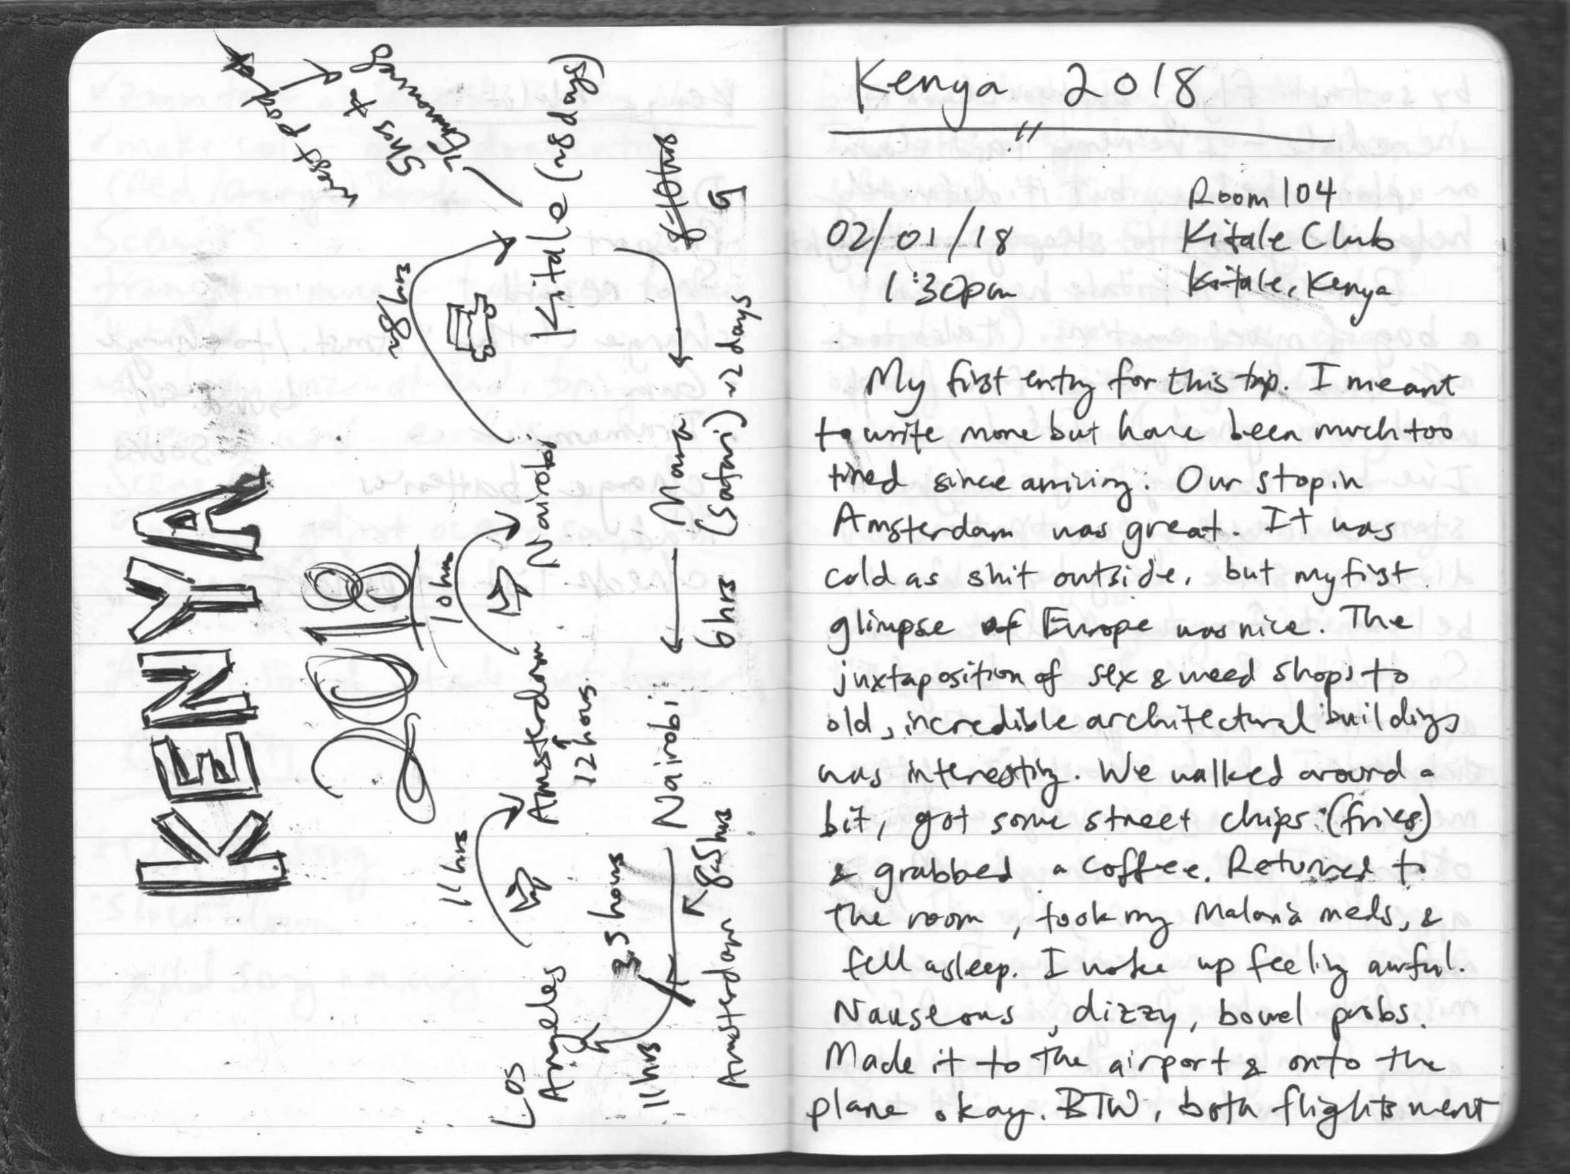 KENYA
2018
Los Angeles
11 hrs
Amsterdam
12 hours
10 hrs
Nairobi
~8hrs
Kitale (~8 days)
west pod
5hrs to
8-10hrs
9
Mara
(Safari) ~2 days
6hrs
Nairobi
8.5hrs
Amsterdam
3.5 hours
11hrs
Kenya 2018
Room 104
02/01/18 Kitale Club
1:30pm Kitale, Kenya
My first entry for this trip. I meant
to write more but have been much too
tired since arriving. Our stop in
Amsterdam was great. It was
cold as shit outside, but my first
glimpse of Europe was nice. The
juxtaposition of sex & weed shops to
old, incredible architectural buildings
was interesting. We walked around a
bit, got some street chips (fries)
& grabbed a coffee. Returned to
the room, took my Malaria meds, &
fell asleep. I woke up feeling awful.
Nauseous, dizzy, bowel probs.
Made it to the airport & onto the
plane okay. BTW, both flights went